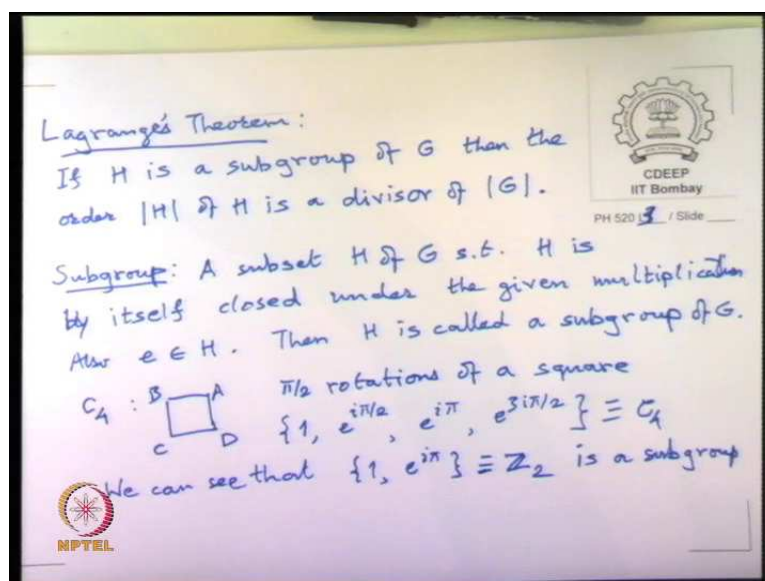 Lagrange's Theorem:
If H is a subgroup of G then the
order |H| of H is a divisor of |G|.
CDEEP
IIT Bombay
PH 520 L 3 / Slide
Subgroup: A subset H of G s.t. H is
by itself closed under the given multiplication
Also e ∈ H. Then H is called a subgroup of G.
C₄ : B A C D π/2 rotations of a square
{1, e^{iπ/2}, e^{iπ}, e^{3iπ/2}} ≡ C₄
We can see that {1, e^{iπ}} ≡ Z₂ is a subgroup
NPTEL